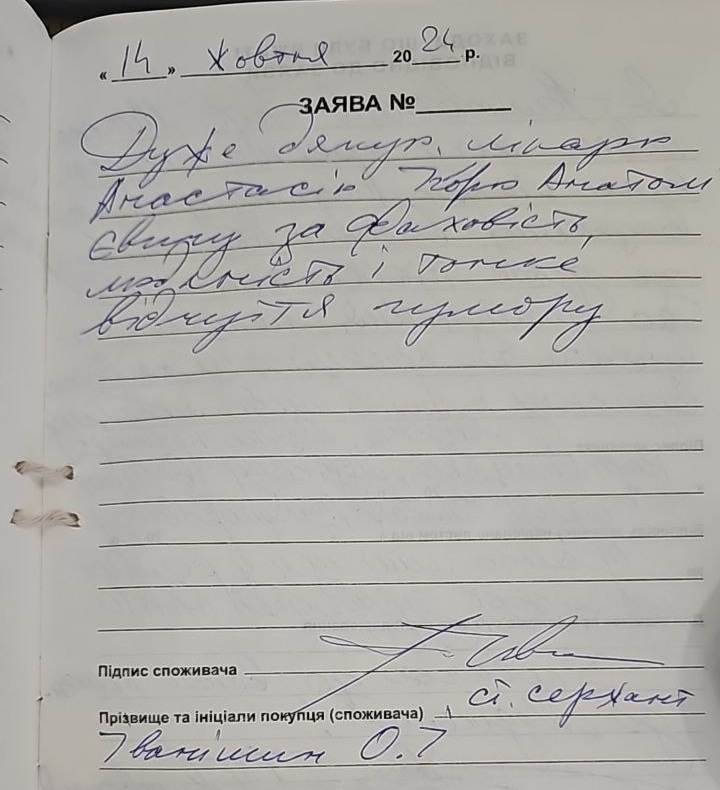 « 14 » Жовтня 2024 р.
ЗАЯВА №
Дуже дякую лікарю
Анастасію Юрію Анатолі
євичу за фаховість,
людяність і тонке
відчуття гумору
Підпис споживача
ст. сержант
Прізвище та ініціали покупця (споживача)
Іванішин О.І